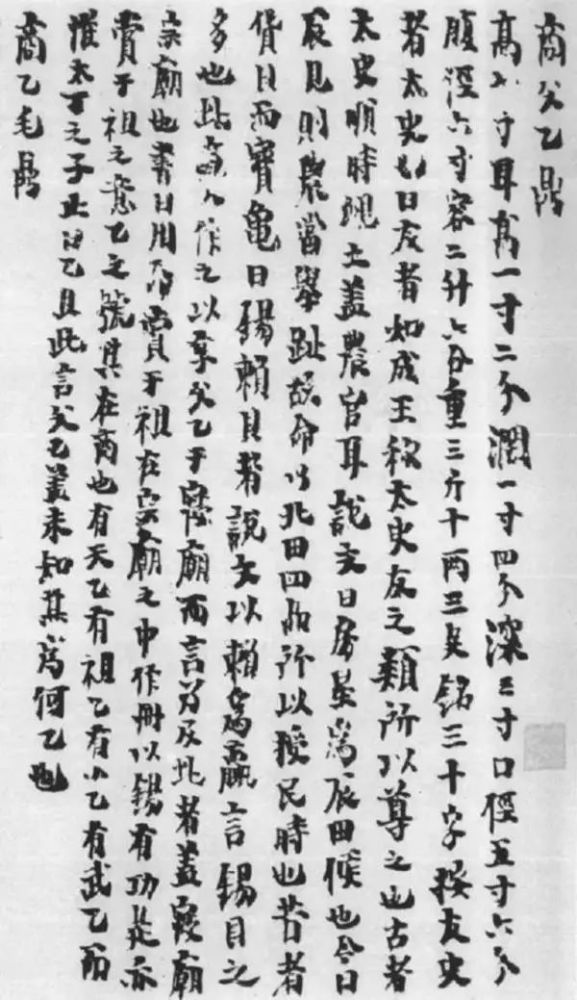 商父乙鼎
高六寸耳高一寸二分濶一寸四分深三寸口徑五寸六分
腹徑六寸容二升六合重三斤十两三足銘三十字按友史
者太史也曰友者如成王称太史友之類所以尊之也古者
太史順時覛土蓋農官耳説文曰房星為辰田候也今曰
辰見則農當舉趾故命以北田四品所以授民時也昔者
貨貝而寶龜曰錫賴貝者說文以賴為贏言錫貝之
多也此商人作之以享父乙于寢廟而言及北者蓋寢廟
宗廟也書曰用命賞于祖在宗廟之中作冊以錫有功是亦
賞于祖之意乙之號其在商也有天乙有祖乙有小乙有武乙而
惟太丁之子止曰乙且此言父乙蓋未知其為何乙也
商乙毛鼎